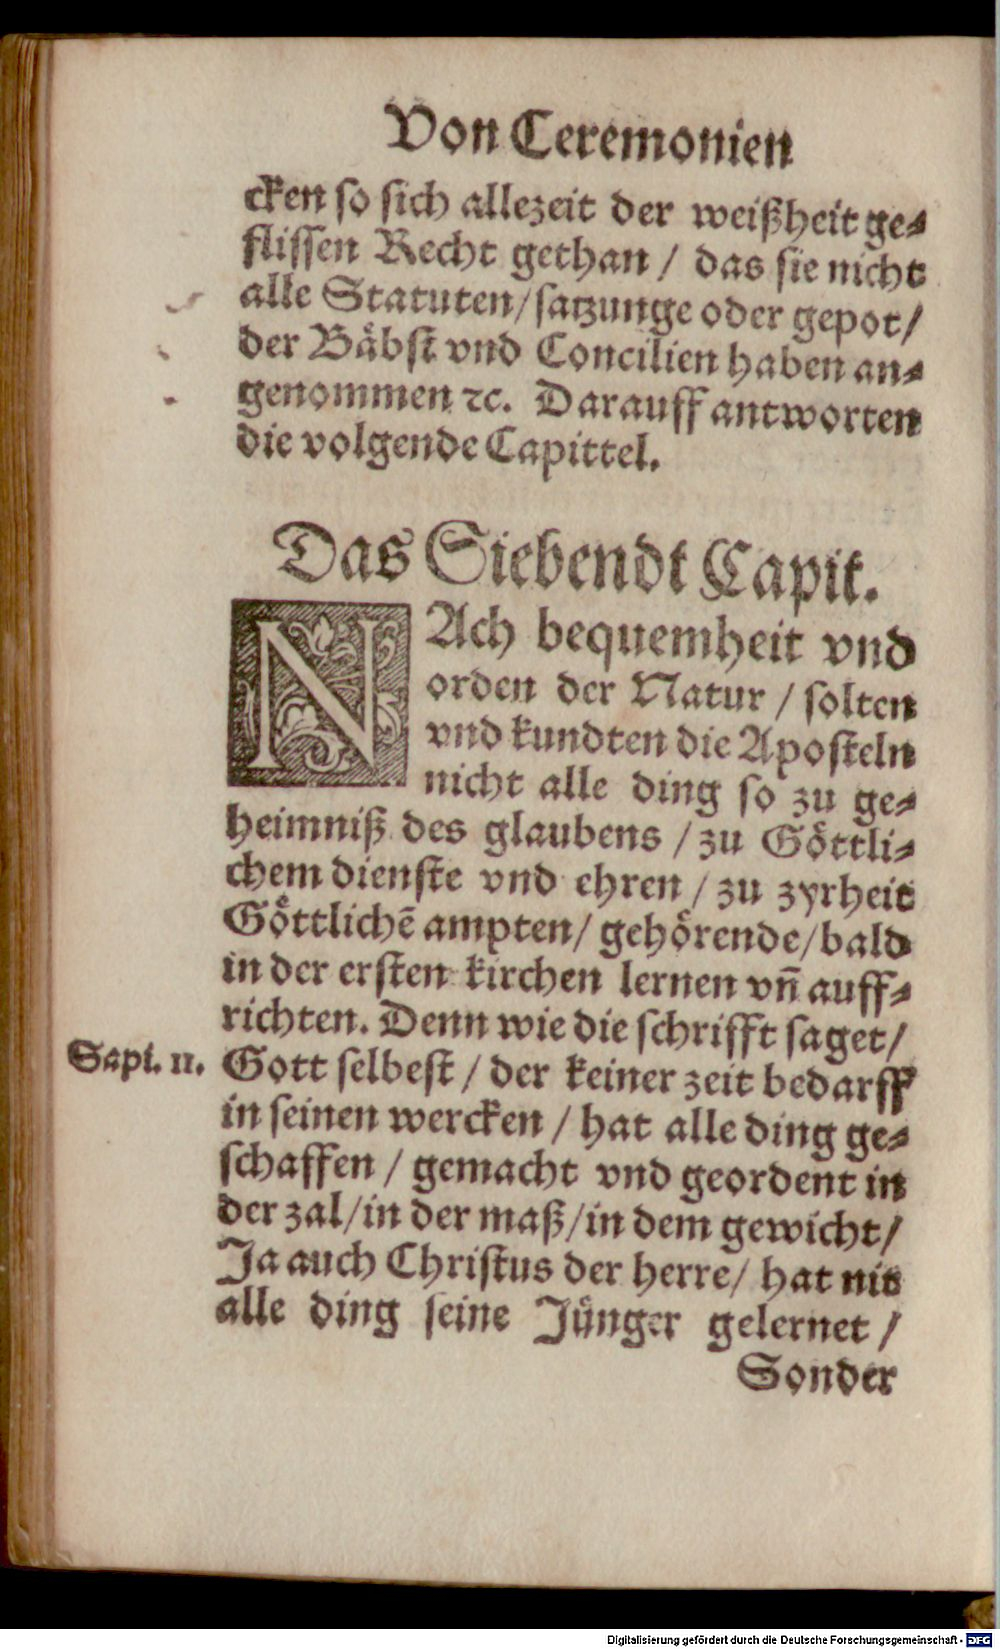 Von Ceremonien
cken so sich allezeit der weißheit ge⸗
flissen Recht gethan / das sie nicht
alle Statuten/satzunge oder gepot/
der Bäbst vnd Concilien haben an⸗
genommen ꝛc. Darauff antworten
die volgende Capittel.
Das Siebendt Capit.
NAch bequemheit vnd
orden der Natur / solten
vnd kundten die Aposteln
nicht alle ding so zu ge⸗
heimniß des glaubens / zu Göttli⸗
chem dienste vnd ehren / zu zyrheit
Göttlichē ampten/ gehörende/bald
in der ersten kirchen lernen vñ auff⸗
richten. Denn wie die schrifft saget/
Sapi. 11.
Gott selbest / der keiner zeit bedarff
in seinen wercken / hat alle ding ge⸗
schaffen / gemacht vnd geordent in
der zal/in der maß/in dem gewicht/
Ja auch Christus der herre/ hat nit
alle ding seine Jünger gelernet /
Sonder
Digitalisierung gefördert durch die Deutsche Forschungsgemeinschaft - DFG